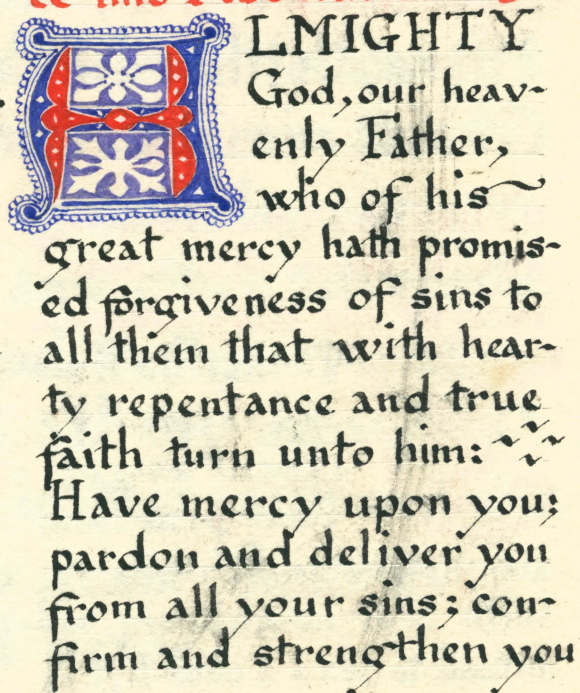 ALMIGHTY
God, our heav-
enly Father,
who of his
great mercy hath promis-
ed forgiveness of sins to
all them that with hear-
ty repentance and true
faith turn unto him:
Have mercy upon you;
pardon and deliver you
from all your sins; con-
firm and strengthen you